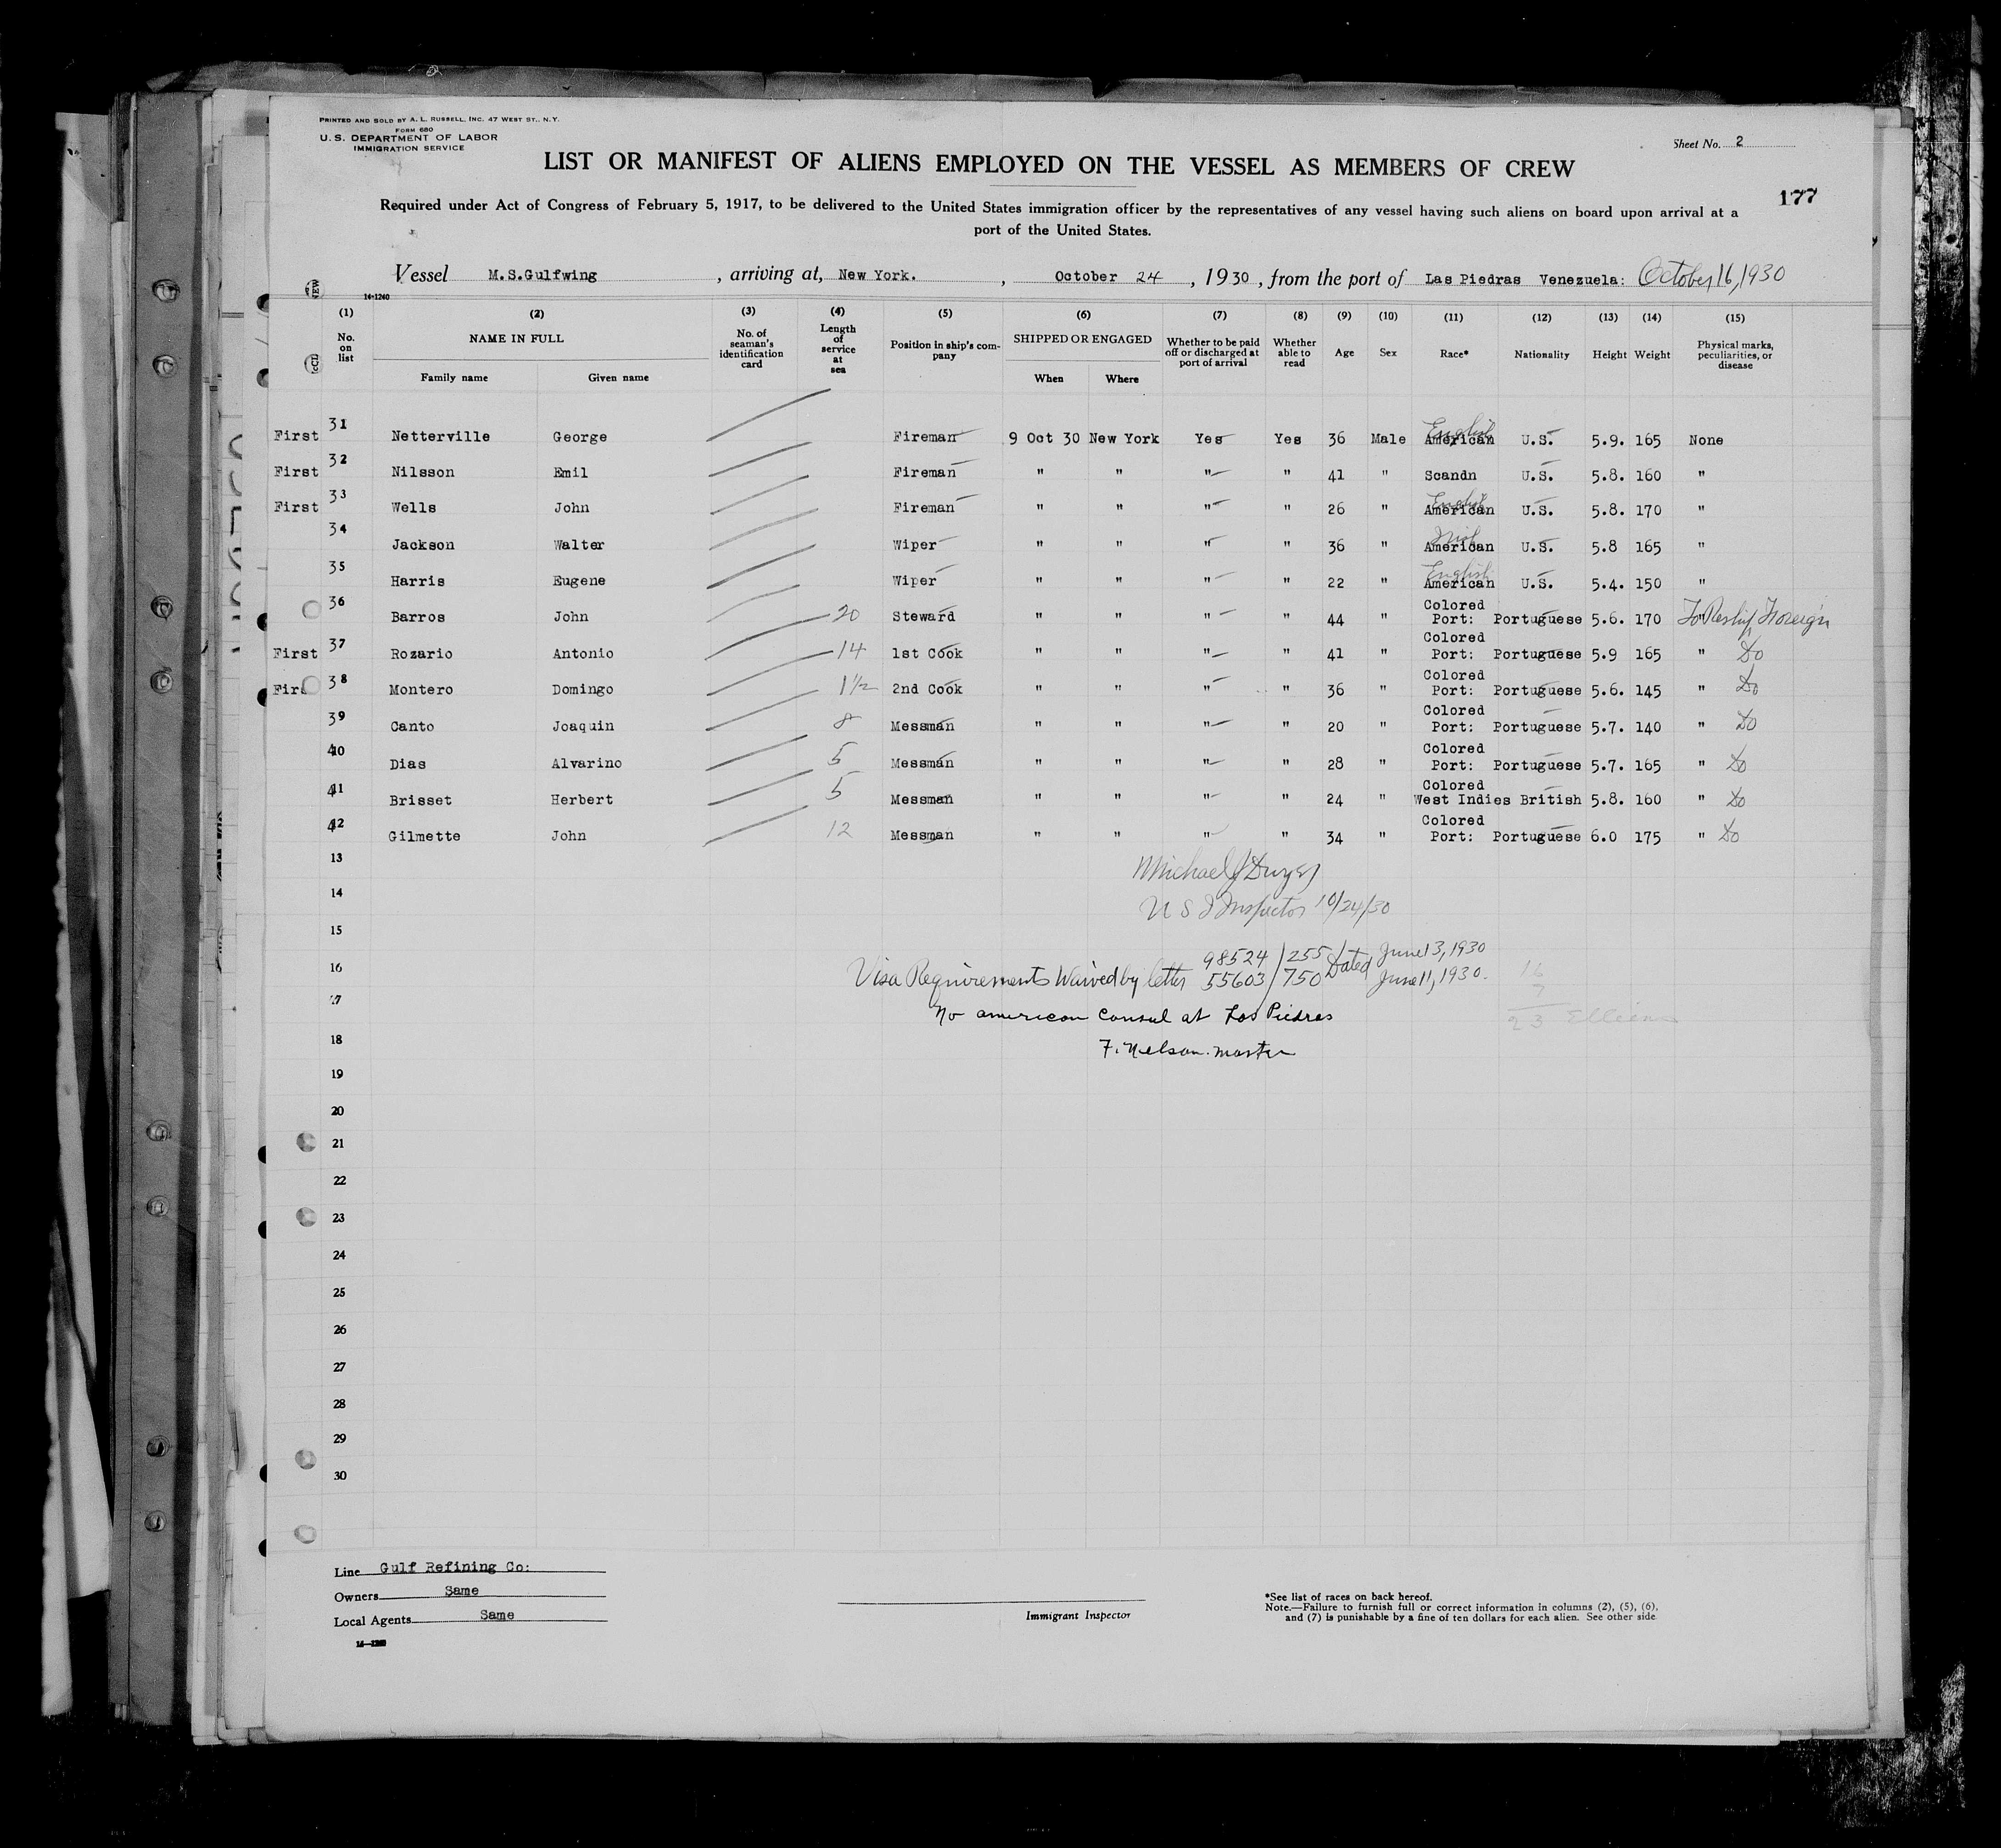 PRINTED AND SOLD BY A. L. RUSSELL, INC. 47 WEST ST., N.Y.
FORM 680
U. S. DEPARTMENT OF LABOR
IMMIGRATION SERVICE
Sheet No. 2
LIST OR MANIFEST OF ALIENS EMPLOYED ON THE VESSEL AS MEMBERS OF CREW
177
Required under Act of Congress of February 5, 1917, to be delivered to the United States immigration officer by the representatives of any vessel having such aliens on board upon arrival at a
port of the United States.
Vessel M.S.Gulfwing , arriving at, New York. , October 24 , 1930 , from the port of Las Piedras Venezuela: October 16, 1930
14-1240
(1) (2) (3) (4) (5) (6) (7) (8) (9) (10) (11) (12) (13) (14) (15)
No. on list NAME IN FULL Family name Given name No. of seaman's identification card Length of service at sea Position in ship's company SHIPPED OR ENGAGED When Where Whether to be paid off or discharged at port of arrival Whether able to read Age Sex Race* Nationality Height Weight Physical marks, peculiarities, or disease
First 31 Netterville George Fireman 9 Oct 30 New York Yes Yes 36 Male American English U.S. 5.9. 165 None
First 32 Nilsson Emil Fireman " " " " 41 " Scandn U.S. 5.8. 160 "
First 33 Wells John Fireman " " " " 26 " American English U.S. 5.8. 170 "
34 Jackson Walter Wiper " " " " 36 " American Irish U.S. 5.8 165 "
35 Harris Eugene Wiper " " " " 22 " American English U.S. 5.4. 150 "
36 Barros John 20 Steward " " " " 44 " Colored Port: Portuguese 5.6. 170 To Reship Foreign
First 37 Rozario Antonio 14 1st Cook " " " " 41 " Colored Port: Portuguese 5.9 165 " Do
Fir 38 Montero Domingo 1½ 2nd Cook " " " " 36 " Colored Port: Portuguese 5.6. 145 " Do
39 Canto Joaquin 8 Messman " " " " 20 " Colored Port: Portuguese 5.7. 140 " Do
40 Dias Alvarino 5 Messman " " " " 28 " Colored Port: Portuguese 5.7. 165 " Do
41 Brisset Herbert 5 Messman " " " " 24 " Colored West Indies British 5.8. 160 " Do
42 Gilmette John 12 Messman " " " " 34 " Colored Port: Portuguese 6.0 175 " Do
13
Michael J Dwyer
14
U S I Inspector 10/24/30
15
98524/255 Dated June 13, 1930
16
Visa Requirements Waived by letter 55603/750 June 11, 1930.
16
7
17
No american Consul at Las Piedras
23
18
F. Nelson. master
19
20
21
22
23
24
25
26
27
28
29
30
Line Gulf Refining Co:
Owners Same
Local Agents Same
14-1240
Immigrant Inspector
*See list of races on back hereof.
Note.—Failure to furnish full or correct information in columns (2), (5), (6),
and (7) is punishable by a fine of ten dollars for each alien. See other side